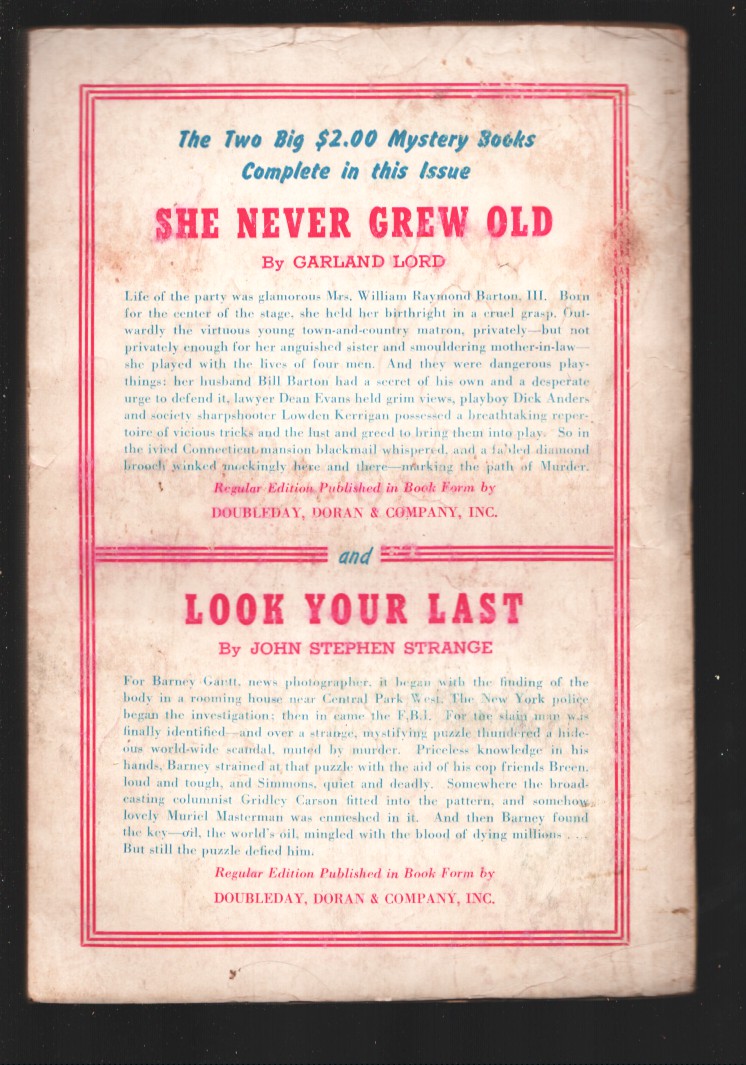 The Two Big $2.00 Mystery Books
Complete in this Issue
SHE NEVER GREW OLD
By GARLAND LORD
Life of the party was glamorous Mrs. William Raymond Barton, III. Born
for the center of the stage, she held her birthright in a cruel grasp. Out-
wardly the virtuous young town-and-country matron, privately—but not
privately enough for her anguished sister and smouldering mother-in-law—
she played with the lives of four men. And they were dangerous play-
things: her husband Bill Barton had a secret of his own and a desperate
urge to defend it, lawyer Dean Evans held grim views, playboy Dick Anders
and society sharpshooter Lowden Kerrigan possessed a breathtaking reper-
toire of vicious tricks and the lust and greed to bring them into play. So in
the ivied Connecticut mansion blackmail whispered, and a fabled diamond
brooch winked mockingly here and there—marking the path of Murder.
Regular Edition Published in Book Form by
DOUBLEDAY, DORAN & COMPANY, INC.
and
LOOK YOUR LAST
By JOHN STEPHEN STRANGE
For Barney Gantt, news photographer, it began with the finding of the
body in a rooming house near Central Park West. The New York police
began the investigation; then in came the F.B.I. For the slain man was
finally identified—and over a strange, mystifying puzzle thundered a hide-
ous world-wide scandal, muted by murder. Priceless knowledge in his
hands, Barney strained at that puzzle with the aid of his cop friends Breen,
loud and tough, and Simmons, quiet and deadly. Somewhere the broad-
casting columnist Gridley Carson fitted into the pattern, and somehow
lovely Muriel Masterman was enmeshed in it. And then Barney found
the key—oil, the world's oil, mingled with the blood of dying millions . . .
But still the puzzle defied him.
Regular Edition Published in Book Form by
DOUBLEDAY, DORAN & COMPANY, INC.